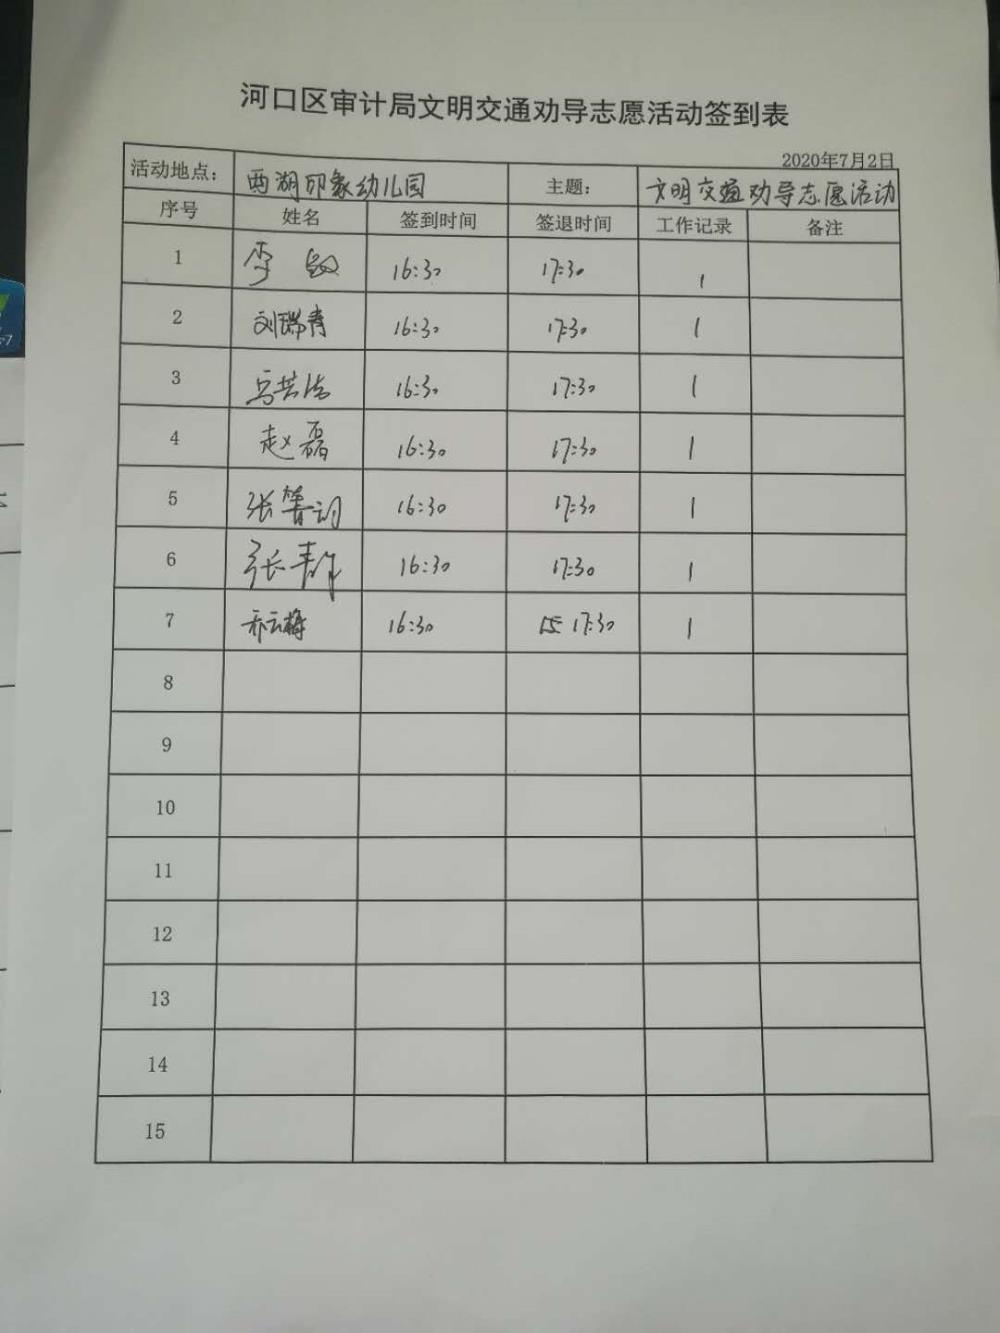 河口区审计局文明交通劝导志愿活动签到表
2020年7月2日
活动地点： 西湖印象幼儿园 主题： 文明交通劝导志愿活动
序号 姓名 签到时间 签退时间 工作记录 备注
1 李 16:30 17:30 1
2 刘瑞青 16:30 17:30 1
3 马 16:30 17:30 1
4 赵磊 16:30 17:30 1
5 张 16:30 17:30 1
6 张 16:30 17:30 1
7 16:30 17:30 1
8
9
10
11
12
13
14
15